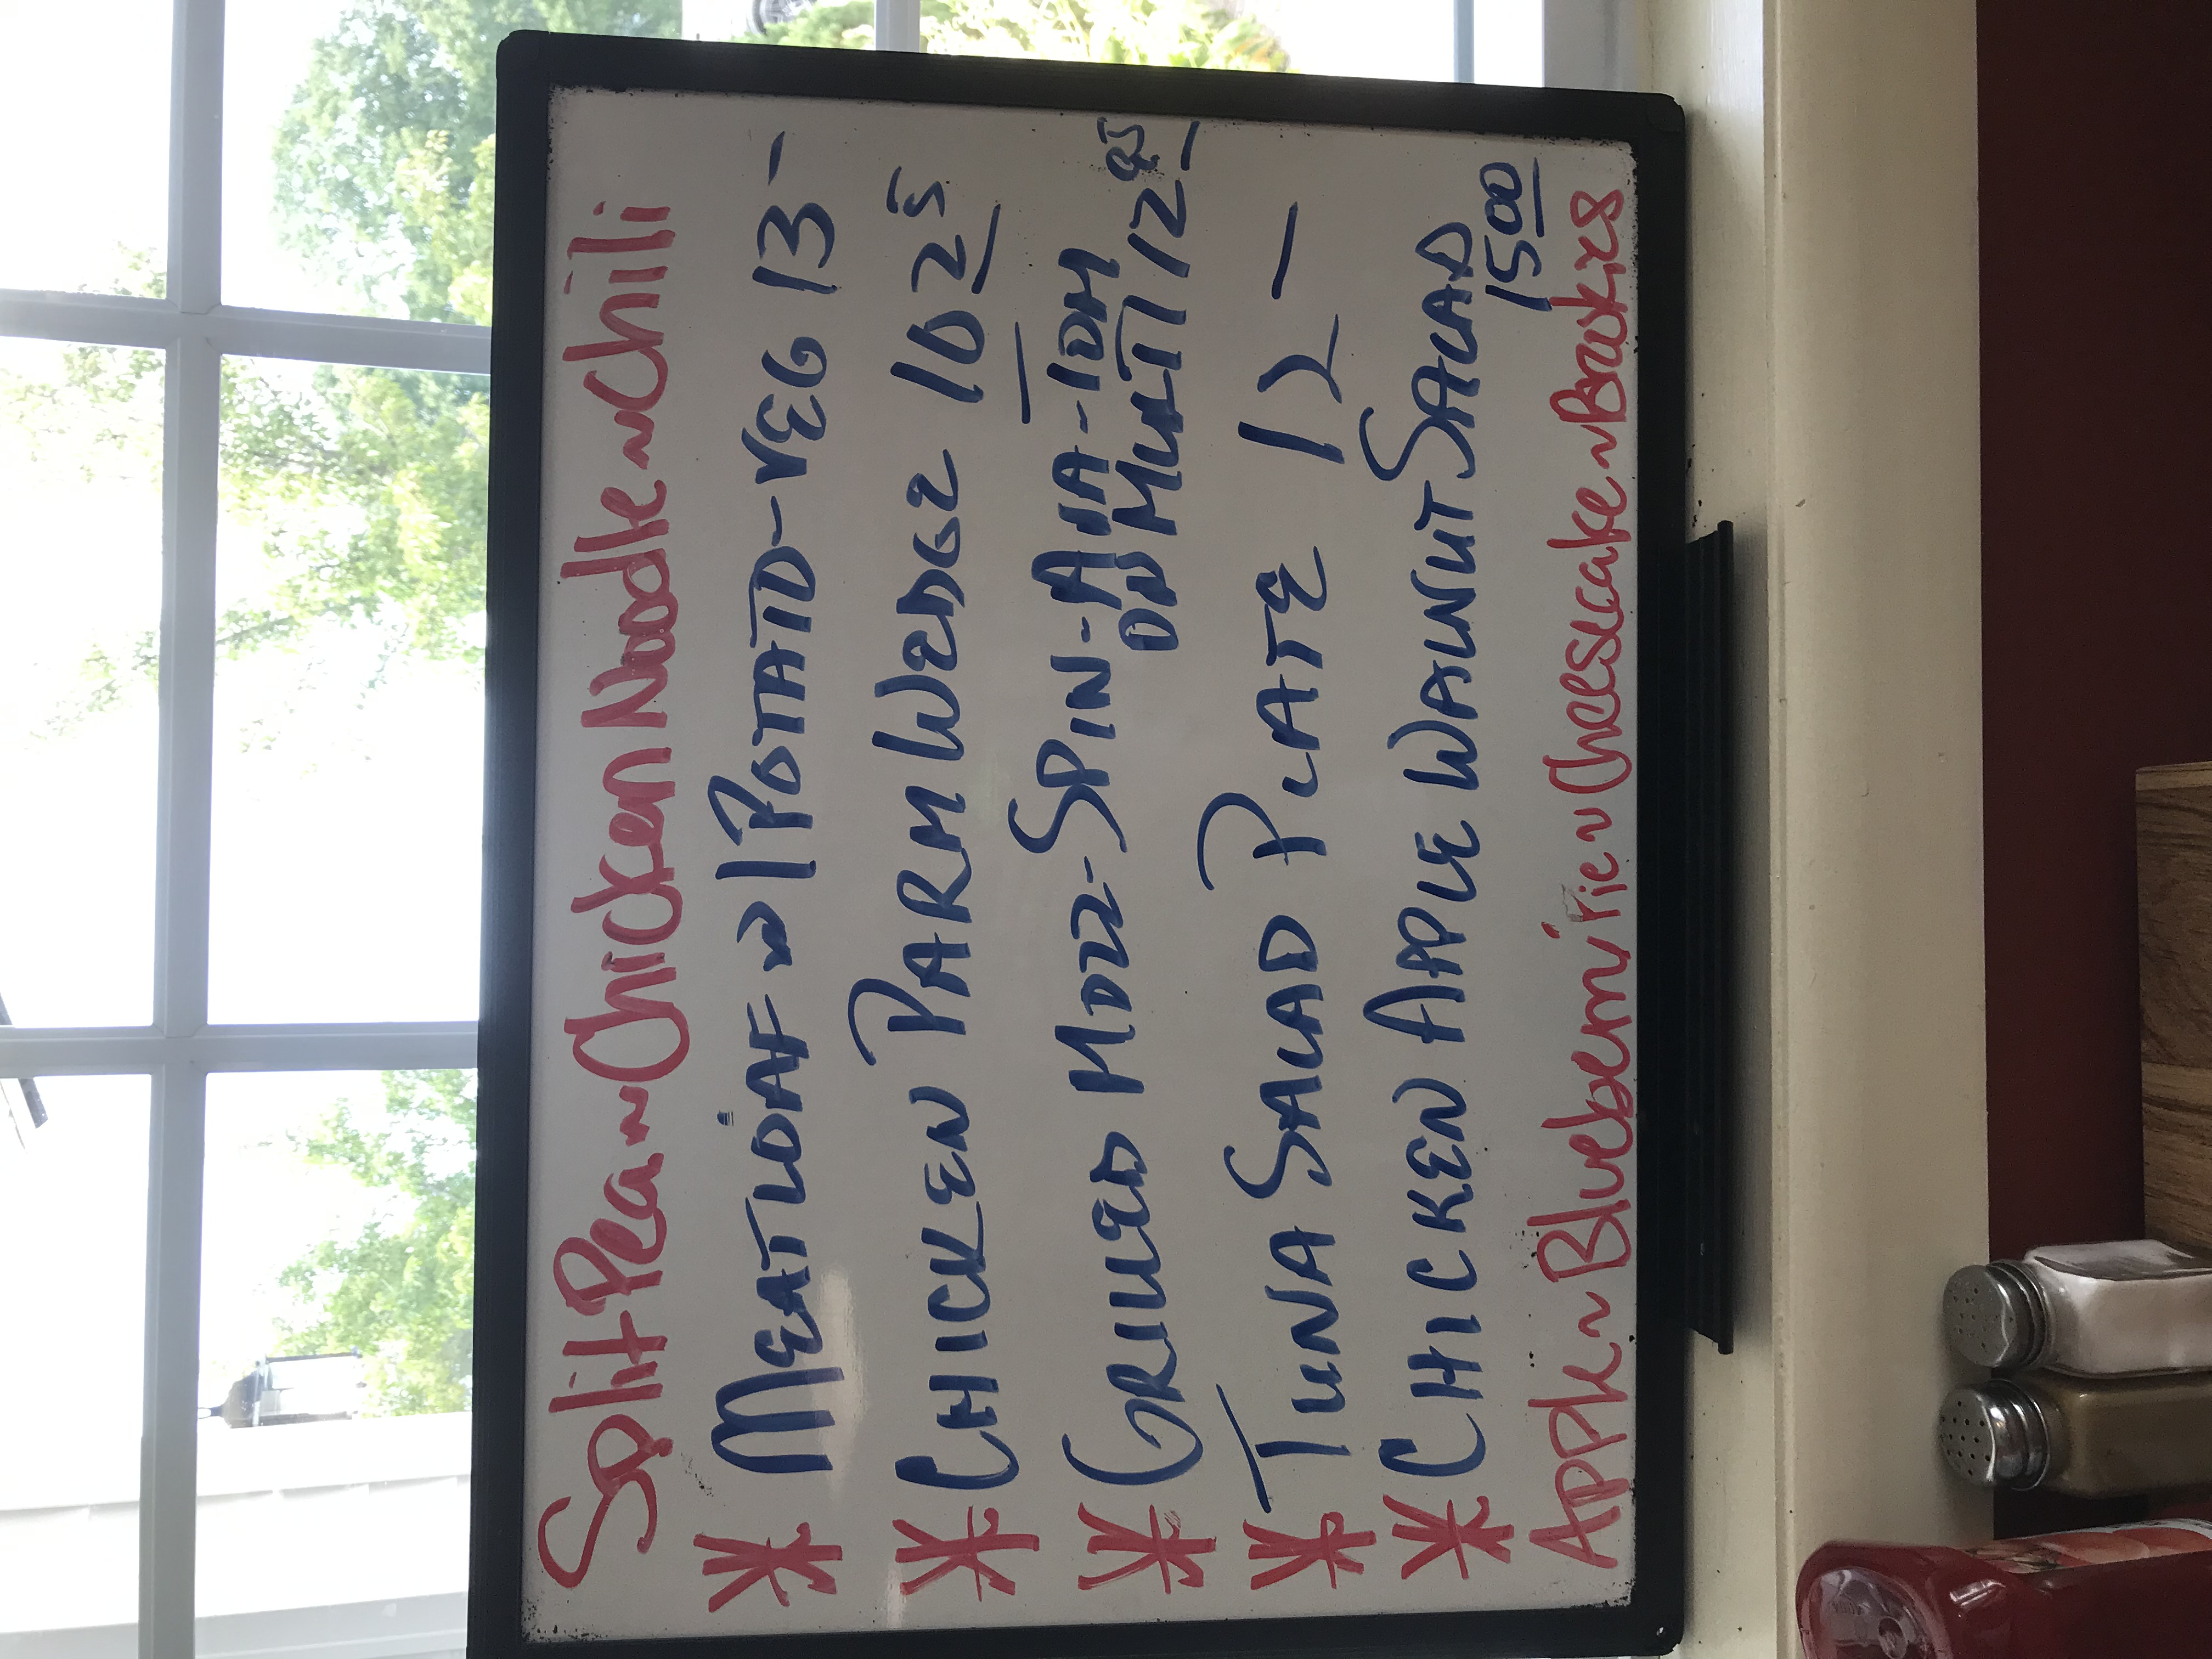 Split Pea ~ Chicken Noodle ~ Chili
* MEATLOAF w/ POTATO-VEG 13-
* CHICKEN PARM WEDGE 10 25
* GRILLED MOZZ-SPIN-AVA-TOM
ON MULTI 12 95
* TUNA SALAD PLATE 12 -
* CHICKEN APPLE WALNUT SALAD
15 00
Apple ~ Blueberry Pie ~ Cheesecake ~